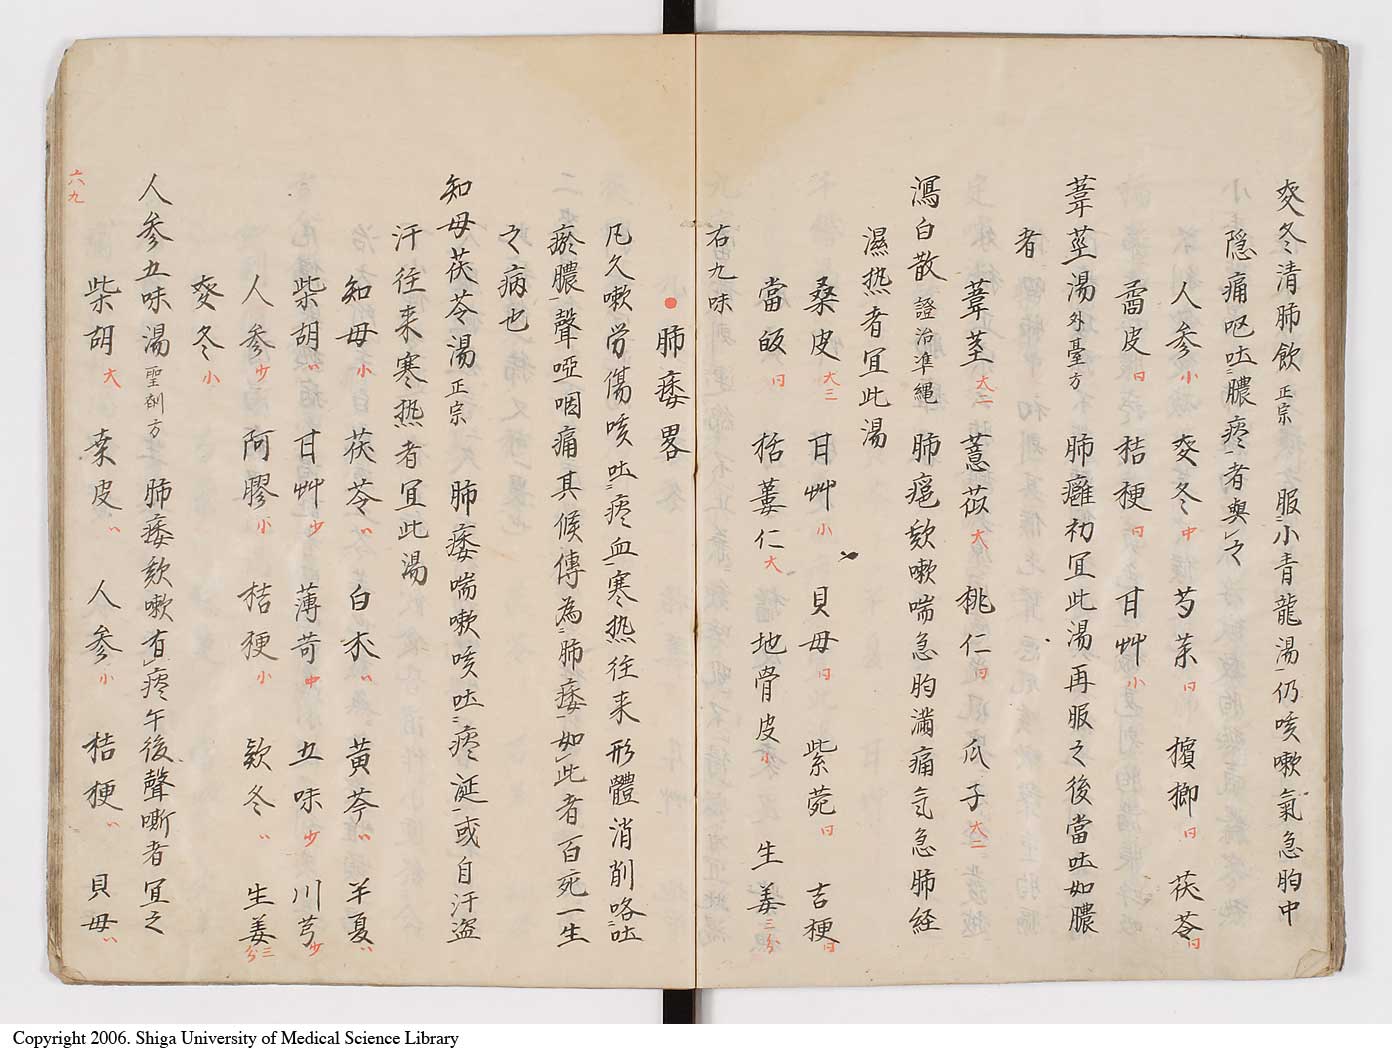 麥冬清肺飲 正宗 服小青龍湯仍咳嗽氣急胸中
隠痛呕吐膿疼者與之
人参 小 麥冬 中 芍茱 曰 檳榔 曰 茯苓 曰
霤皮 曰 桔梗 曰 甘艸 小
葦莖湯 外臺方 肺癰初冝此湯再服之後當吐如膿
者
葦莖 大二 薏苡 大 桃仁 曰 瓜子 大二
瀉白散 證治凖縄 肺癰欬嗽喘急胸滿痛气急肺経
濕热者冝此湯
桑皮 大三 甘艸 小 貝母 曰 紫菀 曰 吉梗 曰
當皈 曰 栝蔞仁 大 地骨皮 小 生姜 三分
右九味
肺痿畧
凡久嗽労傷咳吐痰血寒热往来形體消削咯吐
瘀膿聲啞咽痛其候傳為肺痿如此者百死一生
之病也
知母茯苓湯 正宗 肺痿喘嗽咳吐痰涎或自汗盗
汗往来寒热者冝此湯
知母 小 茯苓 〃 白朮 〃 黄芩 〃 半夏 〃
柴胡 〃 甘艸 少 薄苛 中 五味 少 川芎 少
人参 少 阿膠 小 桔梗 小 欵冬 〃 生姜 三分
麥冬 小
人参五味湯 聖剤方 肺痿欬嗽有痰午後聲嘶者冝之
柴胡 大 桒皮 〃 人参 小 桔梗 〃 貝母 〃
六九
Copyright 2006. Shiga University of Medical Science Library